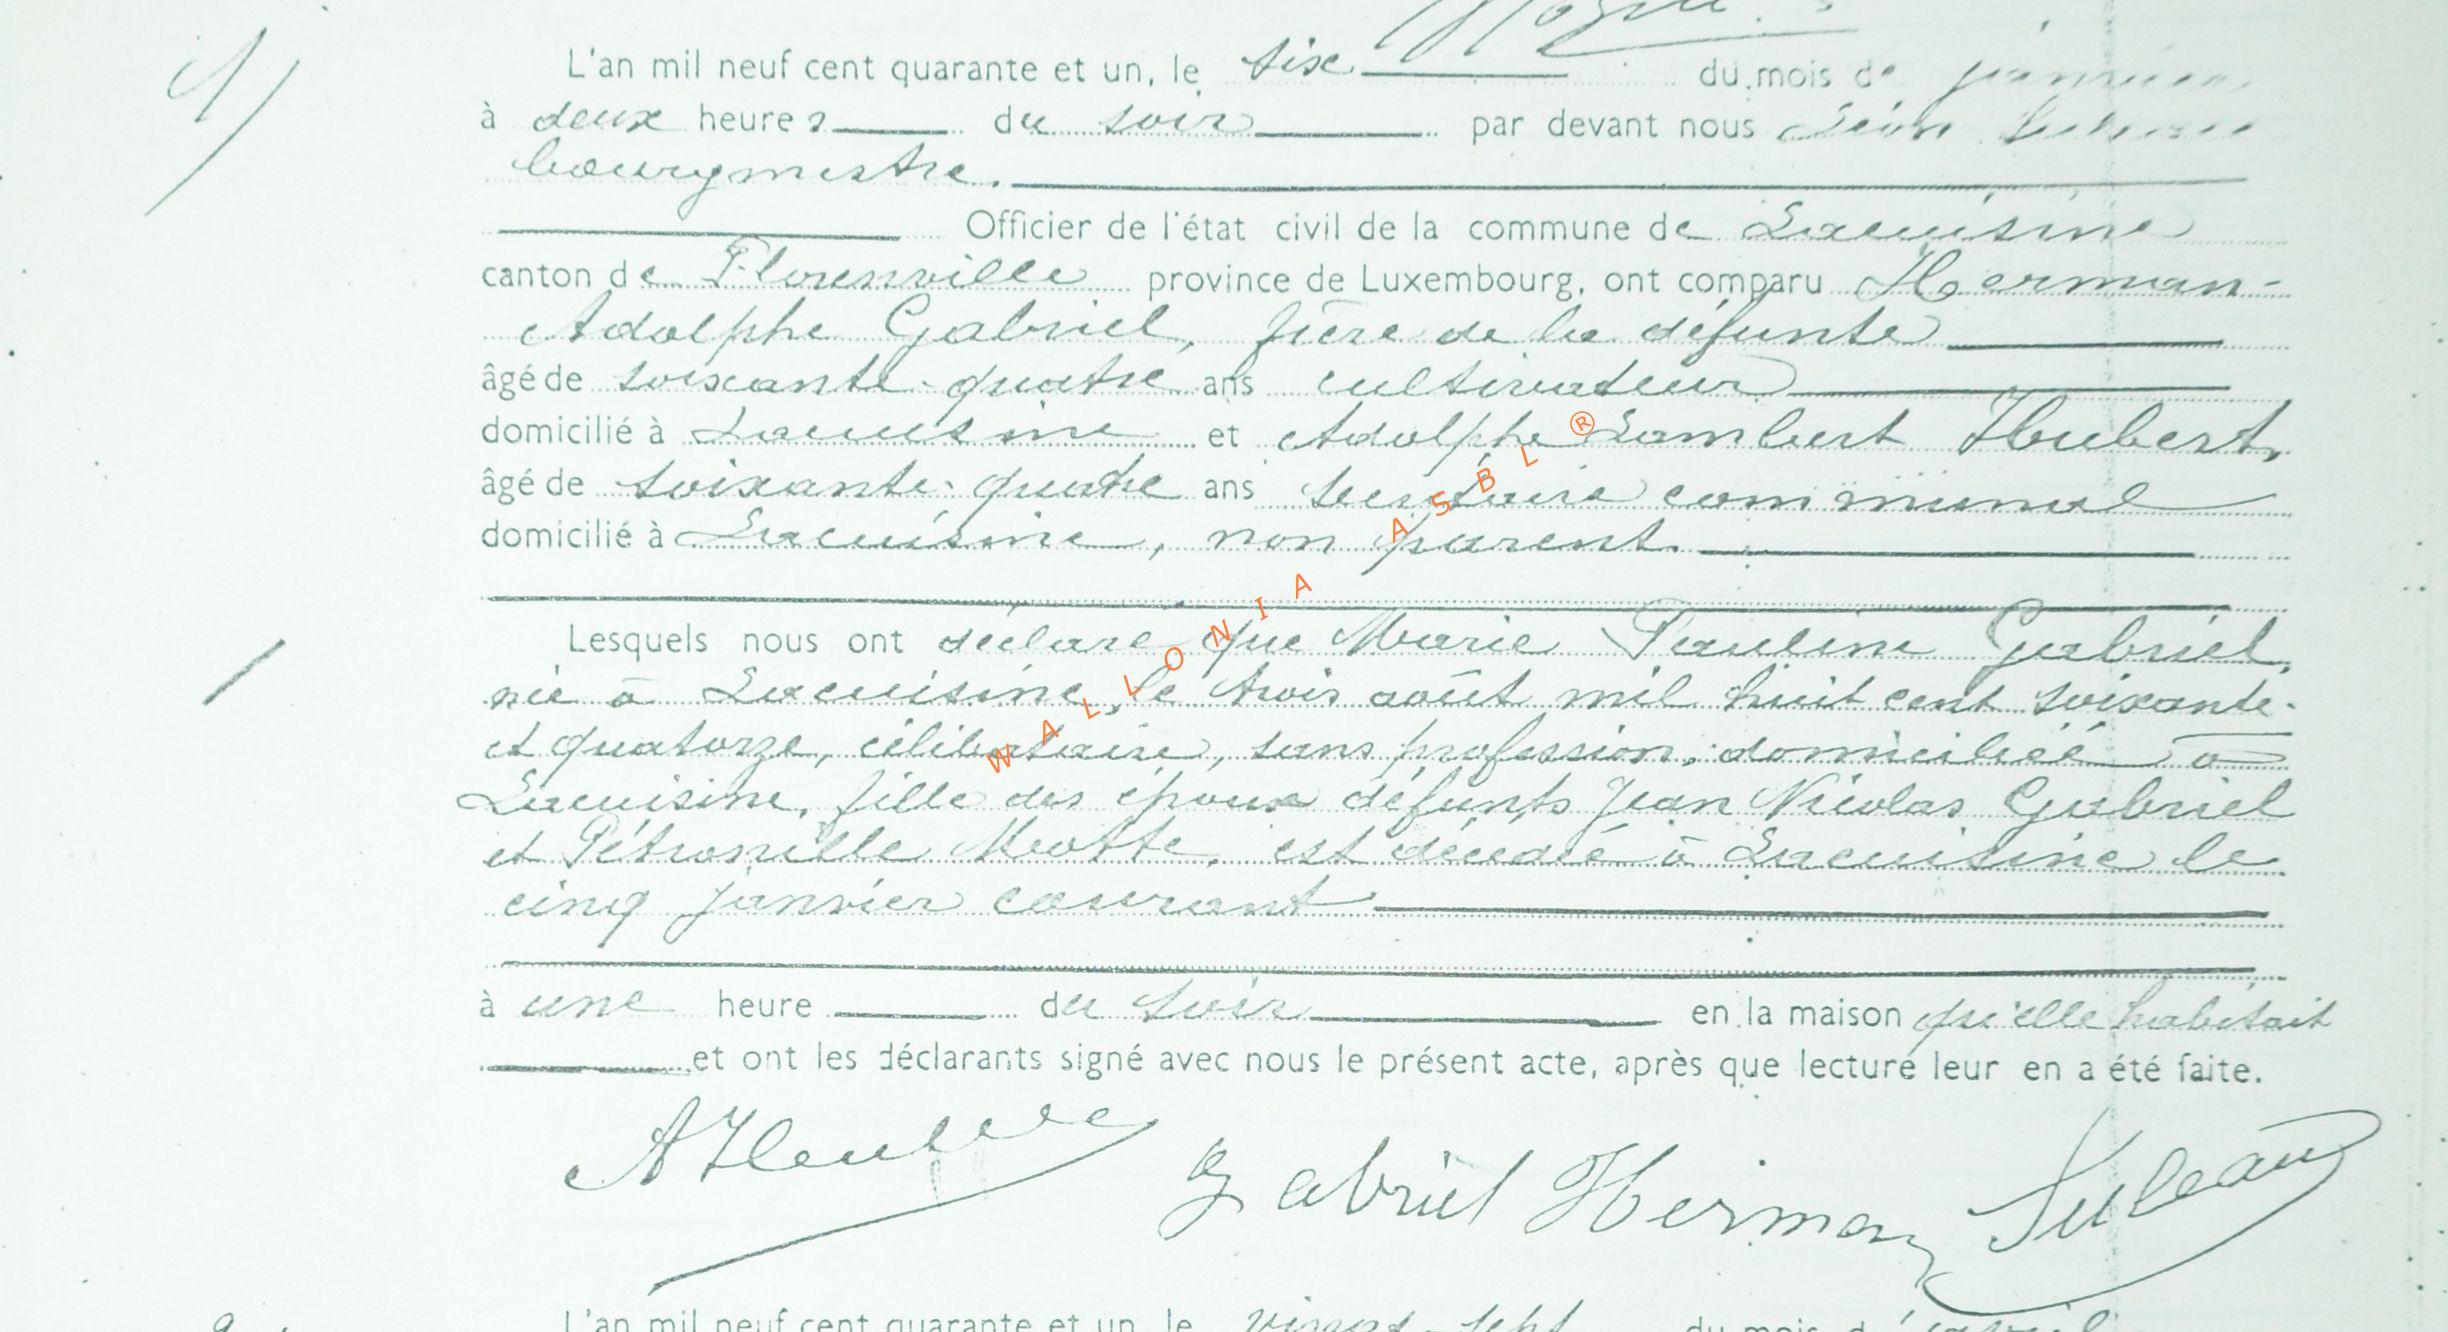 1/
L'an mil neuf cent quarante et un, le six du mois de janvier
à deux heures du soir par devant nous Léon
bourgmestre.
Officier de l'état civil de la commune de Lacuisine
canton de Florenville province de Luxembourg, ont comparu Herman-
Adolphe Gabriel, frère de la défunte
âgé de soixante-quatre ans cultivateur
domicilié à Lacuisine et Adolphe Lambert Hubert,
âgé de soixante-quatre ans secrétaire communal
domicilié à Lacuisine, non parent.
Lesquels nous ont déclaré que Marie Pauline Gabriel,
née à Lacuisine, le trois août mil huit cent soixante-
et quatorze, célibataire, sans profession, domiciliée à
Lacuisine, fille des époux défunts Jean Nicolas Gabriel
et Pétronille Motte, est décédée à Lacuisine le
cinq janvier courant
à une heure du soir en la maison qu'elle habitait
et ont les déclarants signé avec nous le présent acte, après que lecture leur en a été faite.
Gabriel Herman
L'an mil neuf cent quarante et un, le vingt-sept du mois d'avril
WALLONIA ASBL ®